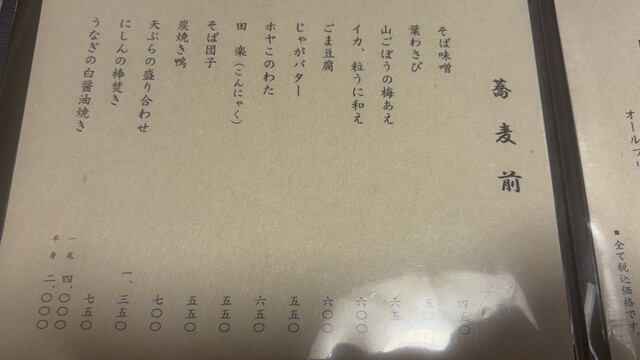 オールフリ
■全て税込価格です
蕎麦前
そば味噌 四五〇
葉わさび
山ごぼうの梅あえ
イカ、粒うに和え 六〇〇
ごま豆腐 六〇〇
じゃがバター 五五〇
ホヤこのわた 六五〇
田 楽(こんにゃく) 五五〇
そば団子 五五〇
炭焼き鴨 七〇〇
天ぷらの盛り合わせ 一、三五〇
にしんの棒焚き 七五〇
うなぎの白醤油焼き 一尾 四、〇〇〇
半身 二、〇〇〇